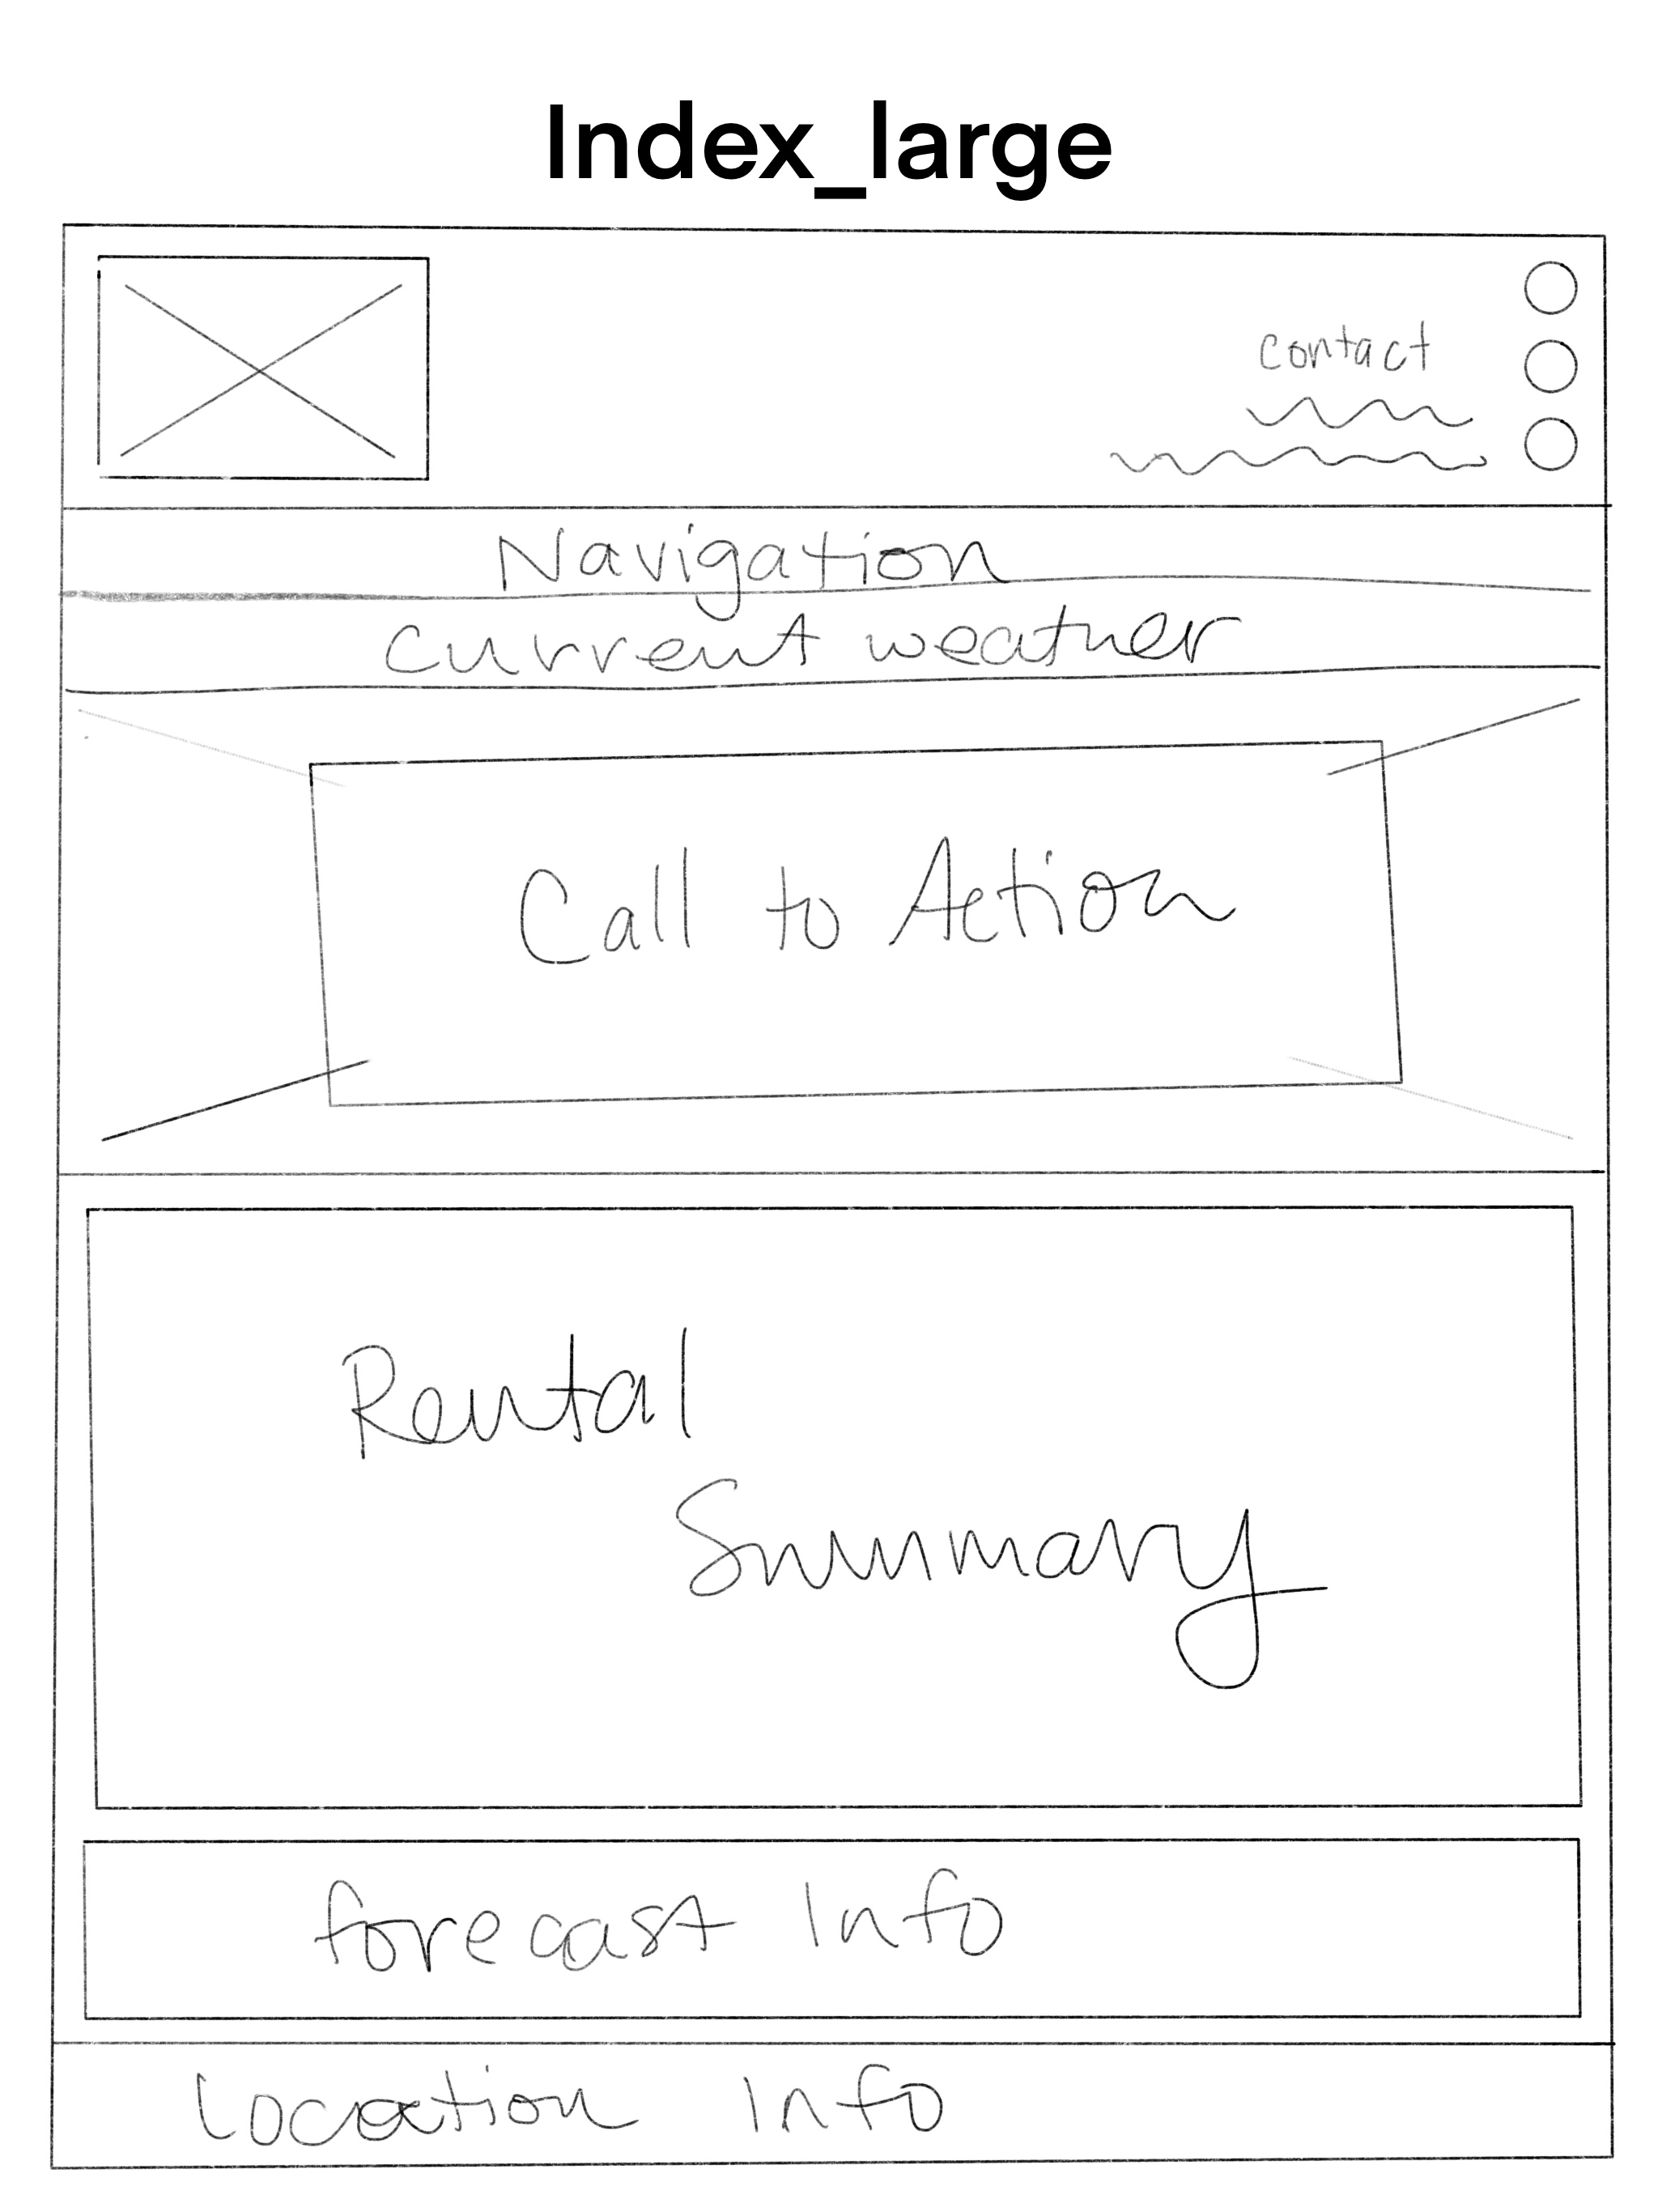 Index_large
contact
Navigation
current weather
Call to Action
Rental
Summary
forecast Info
Location Info